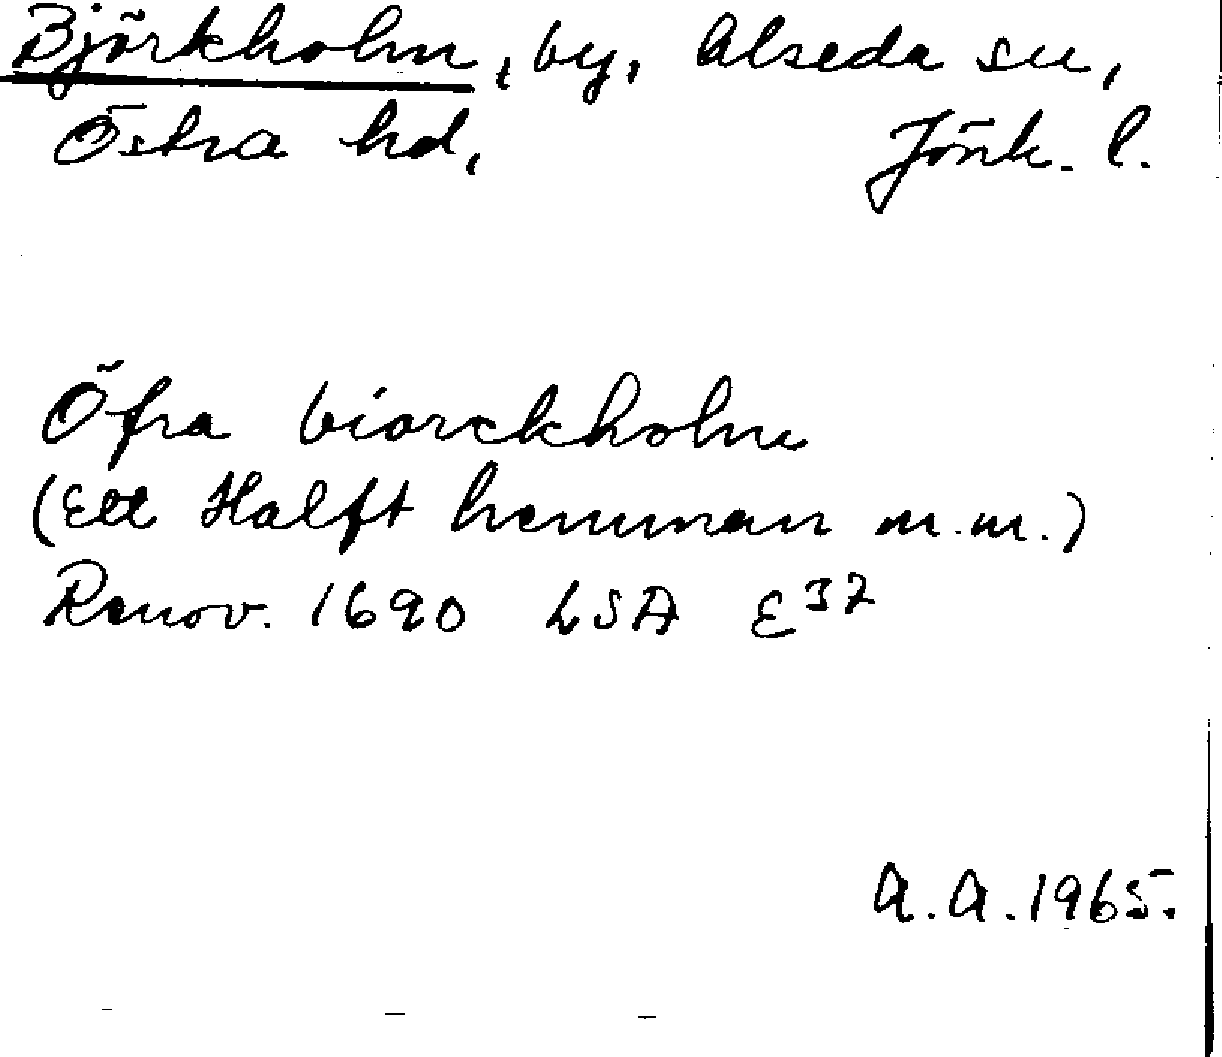 Björkholm, by, Alseda sn,
Östra hd, Jönk. l.
Öfra biorckholm
(Ett Halft hemman m.m.)
Renov. 1690 LSA E 37
A.A. 1965.